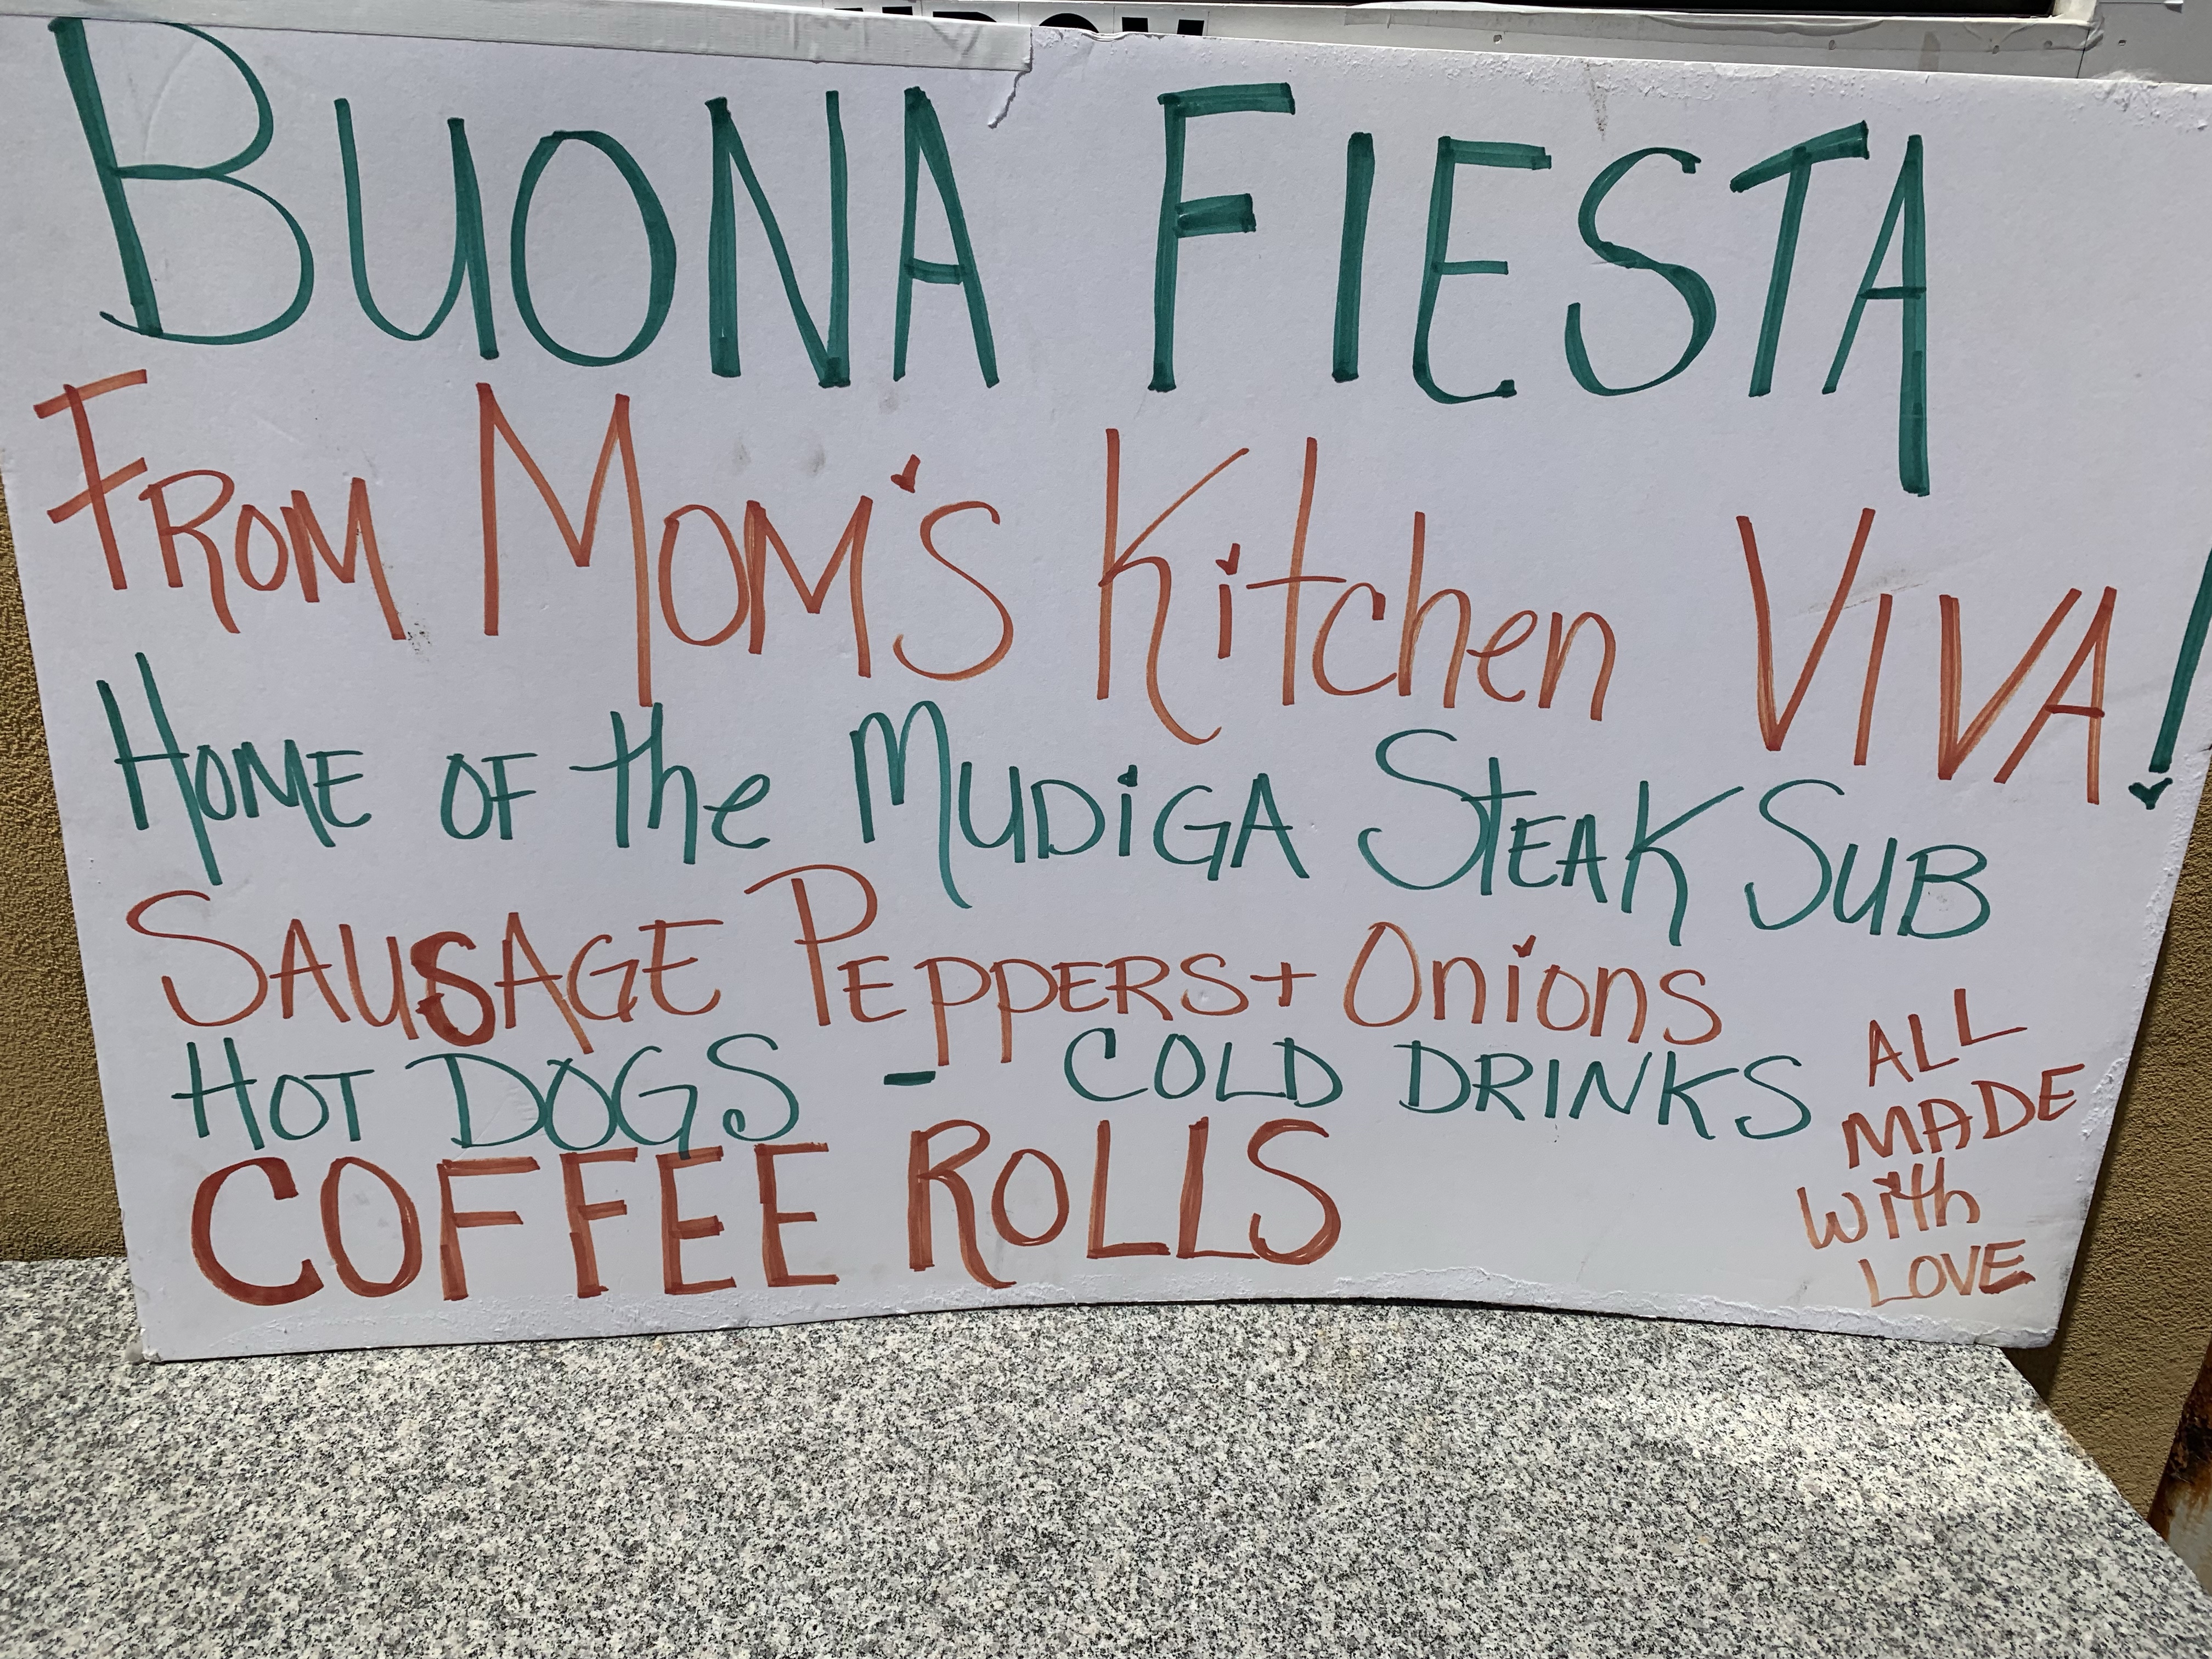 BUONA FIESTA
FROM MOM'S Kitchen VIVA!
HOME OF the MUDiGA STEAK SUB
SAUSAGE PEPPERS + Onions
HOT DOGS - COLD DRINKS
COFFEE ROLLS
ALL
MADE
with
LOVE